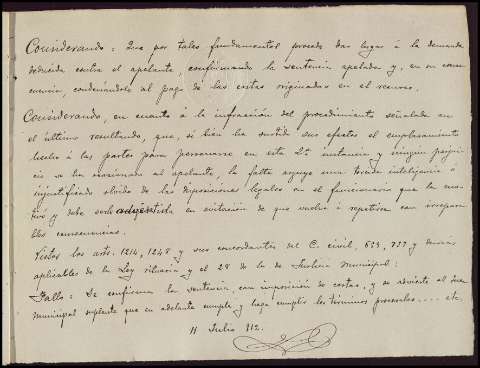 Considerando: Que por tales fundamentos procede dar lugar á la demanda
deducida contra el apelante, confirmando la sentencia apelada y, en su conse-
cuencia, condenándole al pago de las costas originadas en el recurso.
Considerando, en cuanto á la infracción del procedimiento señalada en
el último resultando, que, si bien ha surtido sus efectos el emplazamiento
hecho á las partes para personarse en esta 2ª instancia y ningún perjui-
cio se ha ocasionado al apelante, la falta arguye una torcida inteligencia ó
injustificado olvido de las disposiciones legales en el funcionario que la mo-
tivó y debe serle advertida en evitación de que vuelva á repetirse con irrepara-
bles consecuencias.
Vistos los arts. 1214, 1248 y sus concordantes del C. civil, 659, 777 y demás
aplicables de la Ley rituaria y el 28 de la de Justicia Municipal:
Fallo: Se confirma la sentencia, con imposición de costas, y se advierte al Juez
municipal suplente que en adelante cumpla y haga cumplir los términos procesales.... etc.
11 Julio 912.